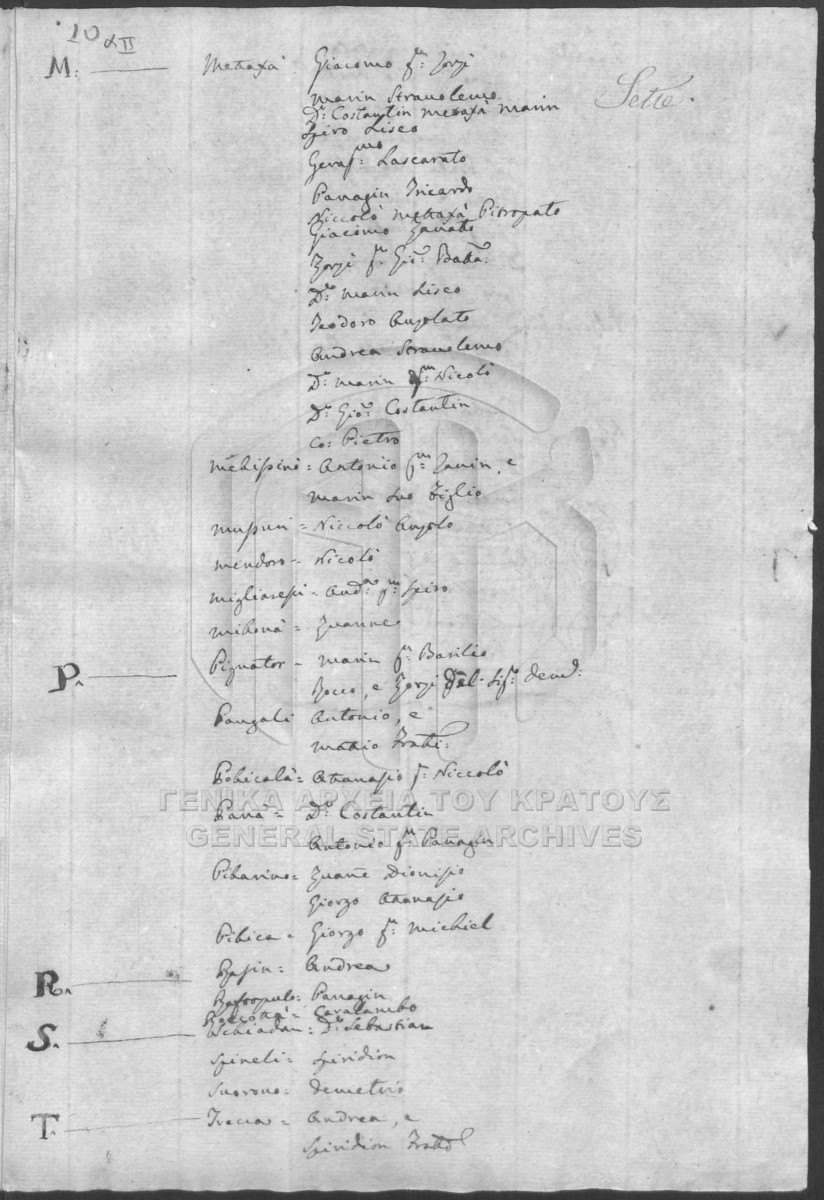 10 αΠ
M: Mettaxà Giacomo qm: Zorzi
Sette.
Marin Stravolemo
Dr: Costantin Metaxà Marin
Spiro Liseo
Gerasmo Lascarato
Panagin Tricardo
Niccolò Mettaxà Pitropato
Giacomo Zanato
Zorzi qm: Gio: Batta:
Dr: Marin Liseo
Teodoro Anzolato
Andrea Stravolemo
Dr: Marin qm: Nicolò
Dr: Gio: Costantin
Co: Pietro
Melissinò = Antonio qm: Zanin, e
Marin suo Figlio
Mussuri = Niccolò Anzolo
Mendoro = Nicolò
Migliaressi = Andra qm: Spiro
Zuanne
P. Pignator = Marin qm: Basilio
Rocco, e Zorzi
Pangali Antonio, e
Mattio Fratti:
Pobicalà = Attanasio qm: Niccolò
Panà = Dr: Costantin
Antonio qm: Panagin
Pilarino = Zuane Dionisio
Giorgo Atanasio
Pilica = Giorgo qm: Michiel
R. Andrea
Panagin
Caralambo
S. Schiadan: Dr: Sebastian
Spineli: Spiridion
Suorono: Demetrio
T. Trecca = Andrea, e
Spiridion Fratti
ΓΕΝΙΚΑ ΑΡΧΕΙΑ ΤΟΥ ΚΡΑΤΟΥΣ
GENERAL STATE ARCHIVES